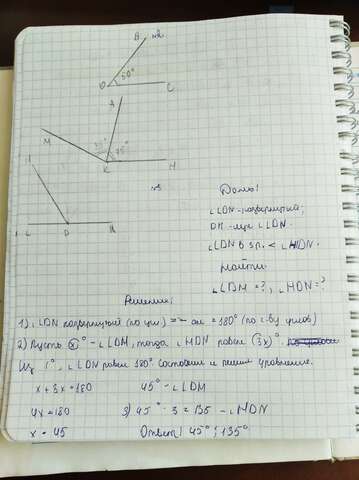 В
№2
60°
О
С
А
М
75°
К
Н
№3
Дано:
∠LDN-развернутый,
∠LDN.
∠LDN в 3 р. < ∠MDN.
Найти
L
D
N
∠LDM = ?, ∠MDN = ?
Решение:
1) ∠LDN развернутый (по усл) = 180° (по св-ву углов)
2) Пусть x° - ∠LDM, тогда ∠MDN равен (3x)°.
Из 1°, ∠LDN равен 180° составим и решим уравнение.
x + 3x = 180
45° - ∠LDM
4x = 180
3) 45° · 3 = 135 - ∠MDN
x = 45
Ответ: 45°; 135°